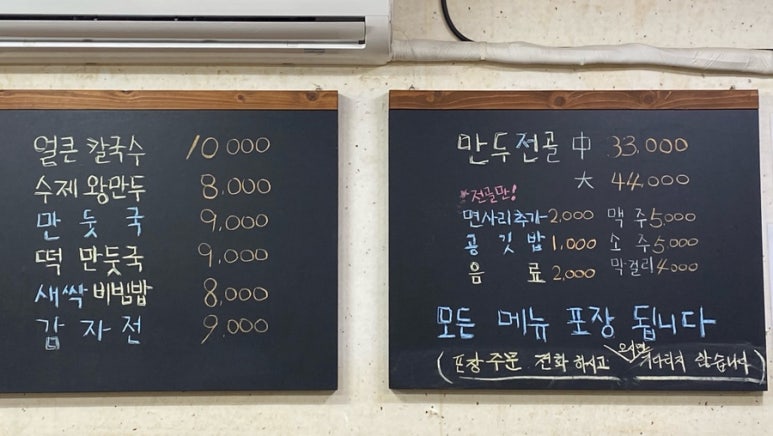 얼큰 칼국수 10,000
수제 왕만두 8,000
만둣국 9,000
떡 만둣국 9,000
새싹 비빔밥 8,000
감자전 9,000
만두전골 中 33,000
大 44,000
*전골만!
면사리추가 2,000 맥주 5,000
공깃밥 1,000 소주 5,000
음료 2,000 막걸리 4,000
모든 메뉴 포장 됩니다
(포장주문 전화하시고 오시면 기다리지 않습니다)